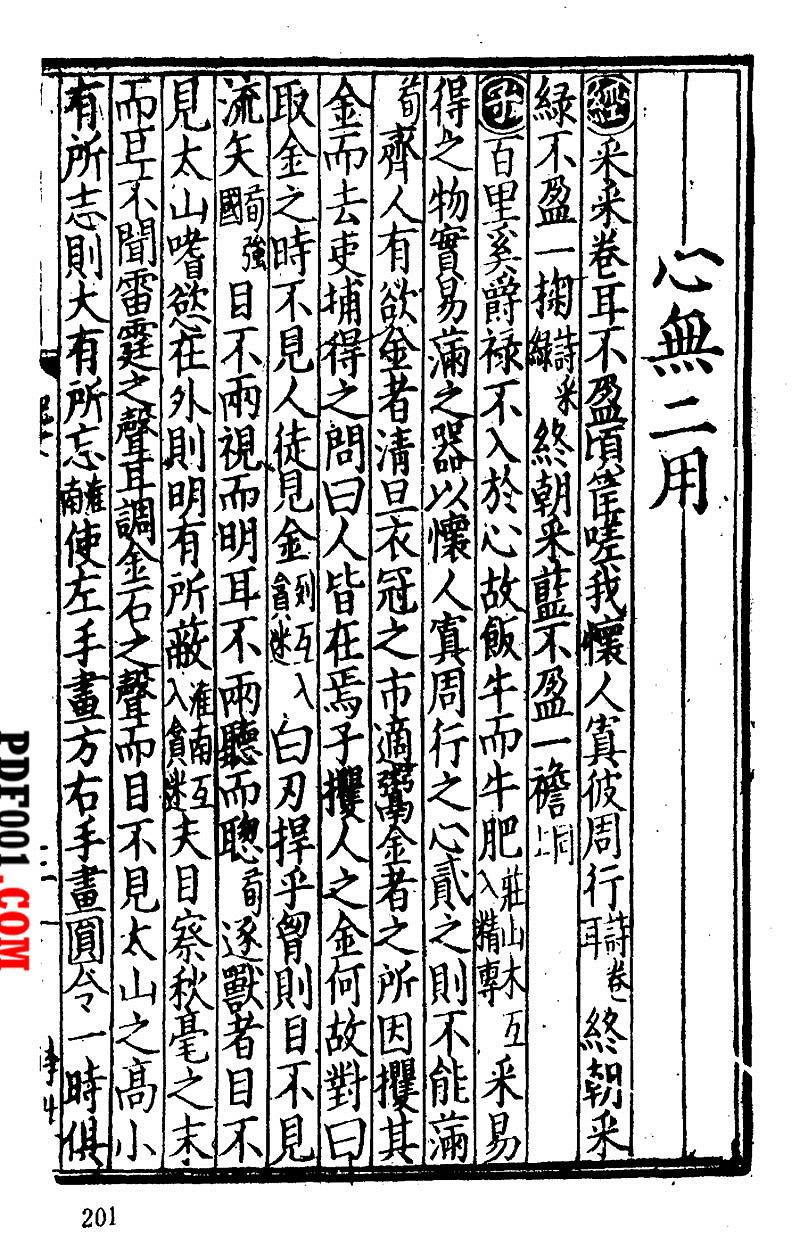 心無二用
經采采卷耳不盈頃筐嗟我懷人寘彼周行詩卷耳終朝采
綠不盈一掬詩采綠終朝采藍不盈一襜同上
子百里奚爵祿不入於心故飯牛而牛肥莊山木互入精專采易
得之物實易滿之器以懷人寘周行之心貳之則不能滿
荀齊人有欲金者清旦衣冠之市適鬻金者之所因攫其
金而去吏捕得之問曰人皆在焉子攫人之金何故對曰
取金之時不見人徒見金列互入貪迷白刃捍乎曾則目不見
流矢荀強國目不兩視而明耳不兩聽而聰荀逐獸者目不
見太山嗜慾在外則明有所蔽淮南互入貪迷夫目察秋毫之末
而耳不聞雷霆之聲耳調金石之聲而目不見太山之高小
有所志則大有所忘淮南使左手畫方右手畫圓令一時俱
201
PDF001.COM